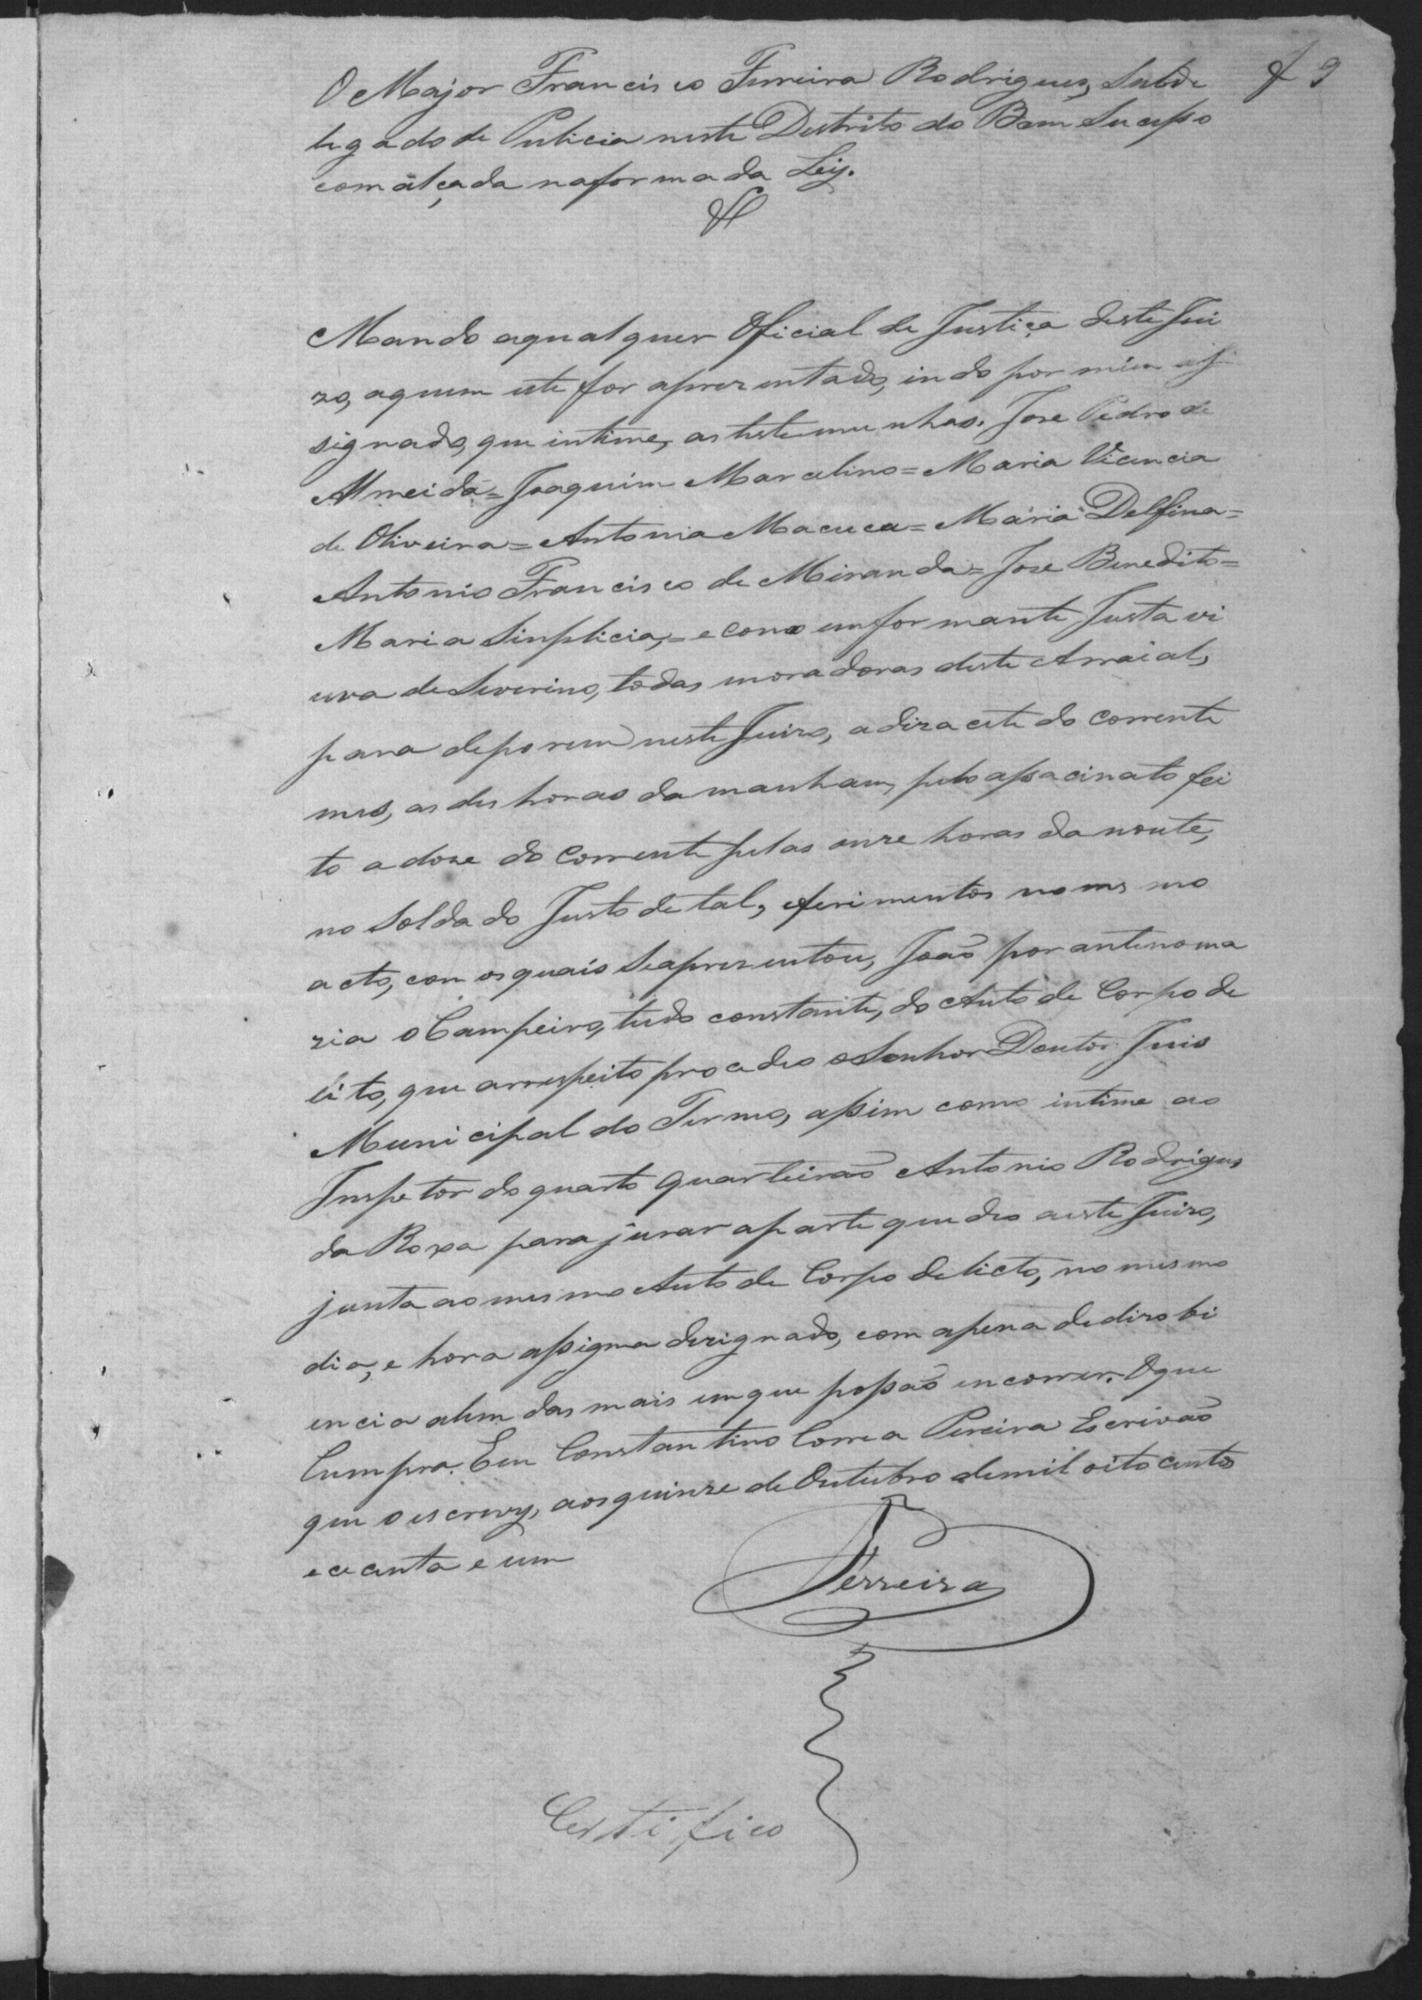 O Major Francisco Ferreira Rodrigues, Subde
f 9
legado de Pulicia neste Destrito do Bom Sucesso
com alçada na forma da Ley.
&
Mando aqualquer Oficial de Justiça deste Jui
zo, aquem este for aprezentado, indo por mim as
signado, que intime, as testemunhas. Joze Pedro de
Almeida = Joaquim Marcelino = Maria Vicencia
de Oliveira = Antonia Macuca = Maria Delfina =
Antonio Francisco de Miranda = Joze Benedito =
Maria Sinplicia, = e como emformante Justa vi
uva de Severino, todas moradoras deste Arraial,
para deporem neste Juizo, a dizacete do corrente
mes, as des horas da manham, pelo assacinato fei
to a doze do corrente pelas onze horas da noute,
no Soldado Justo de tal, eferimentos no mesmo
acto, com os quais Seaprezentou, João por antenoma
zia o Campeiro, tudo constante, do Auto de Corpo de
lito, que arrespeito procedeo o Senhor Doutor Juis
Municipal do Termo, assim como intime ao
Inspetor do quarto quarteirão Antonio Rodrigues
da Roxa para jurar aparte que deo aeste Juizo,
junta ao mesmo Auto de Corpo delicto, no mesmo
dia, e hora assigma dezignado, com apena de dizobi
encia alem das mais emque possão encorrer. Oque
Cumpra. Eu Constantino Correa Pereira Escrivão
que o escrevy, aos quinze de Outubro demil oito centos
e cecenta e um
Ferreira
Certifico